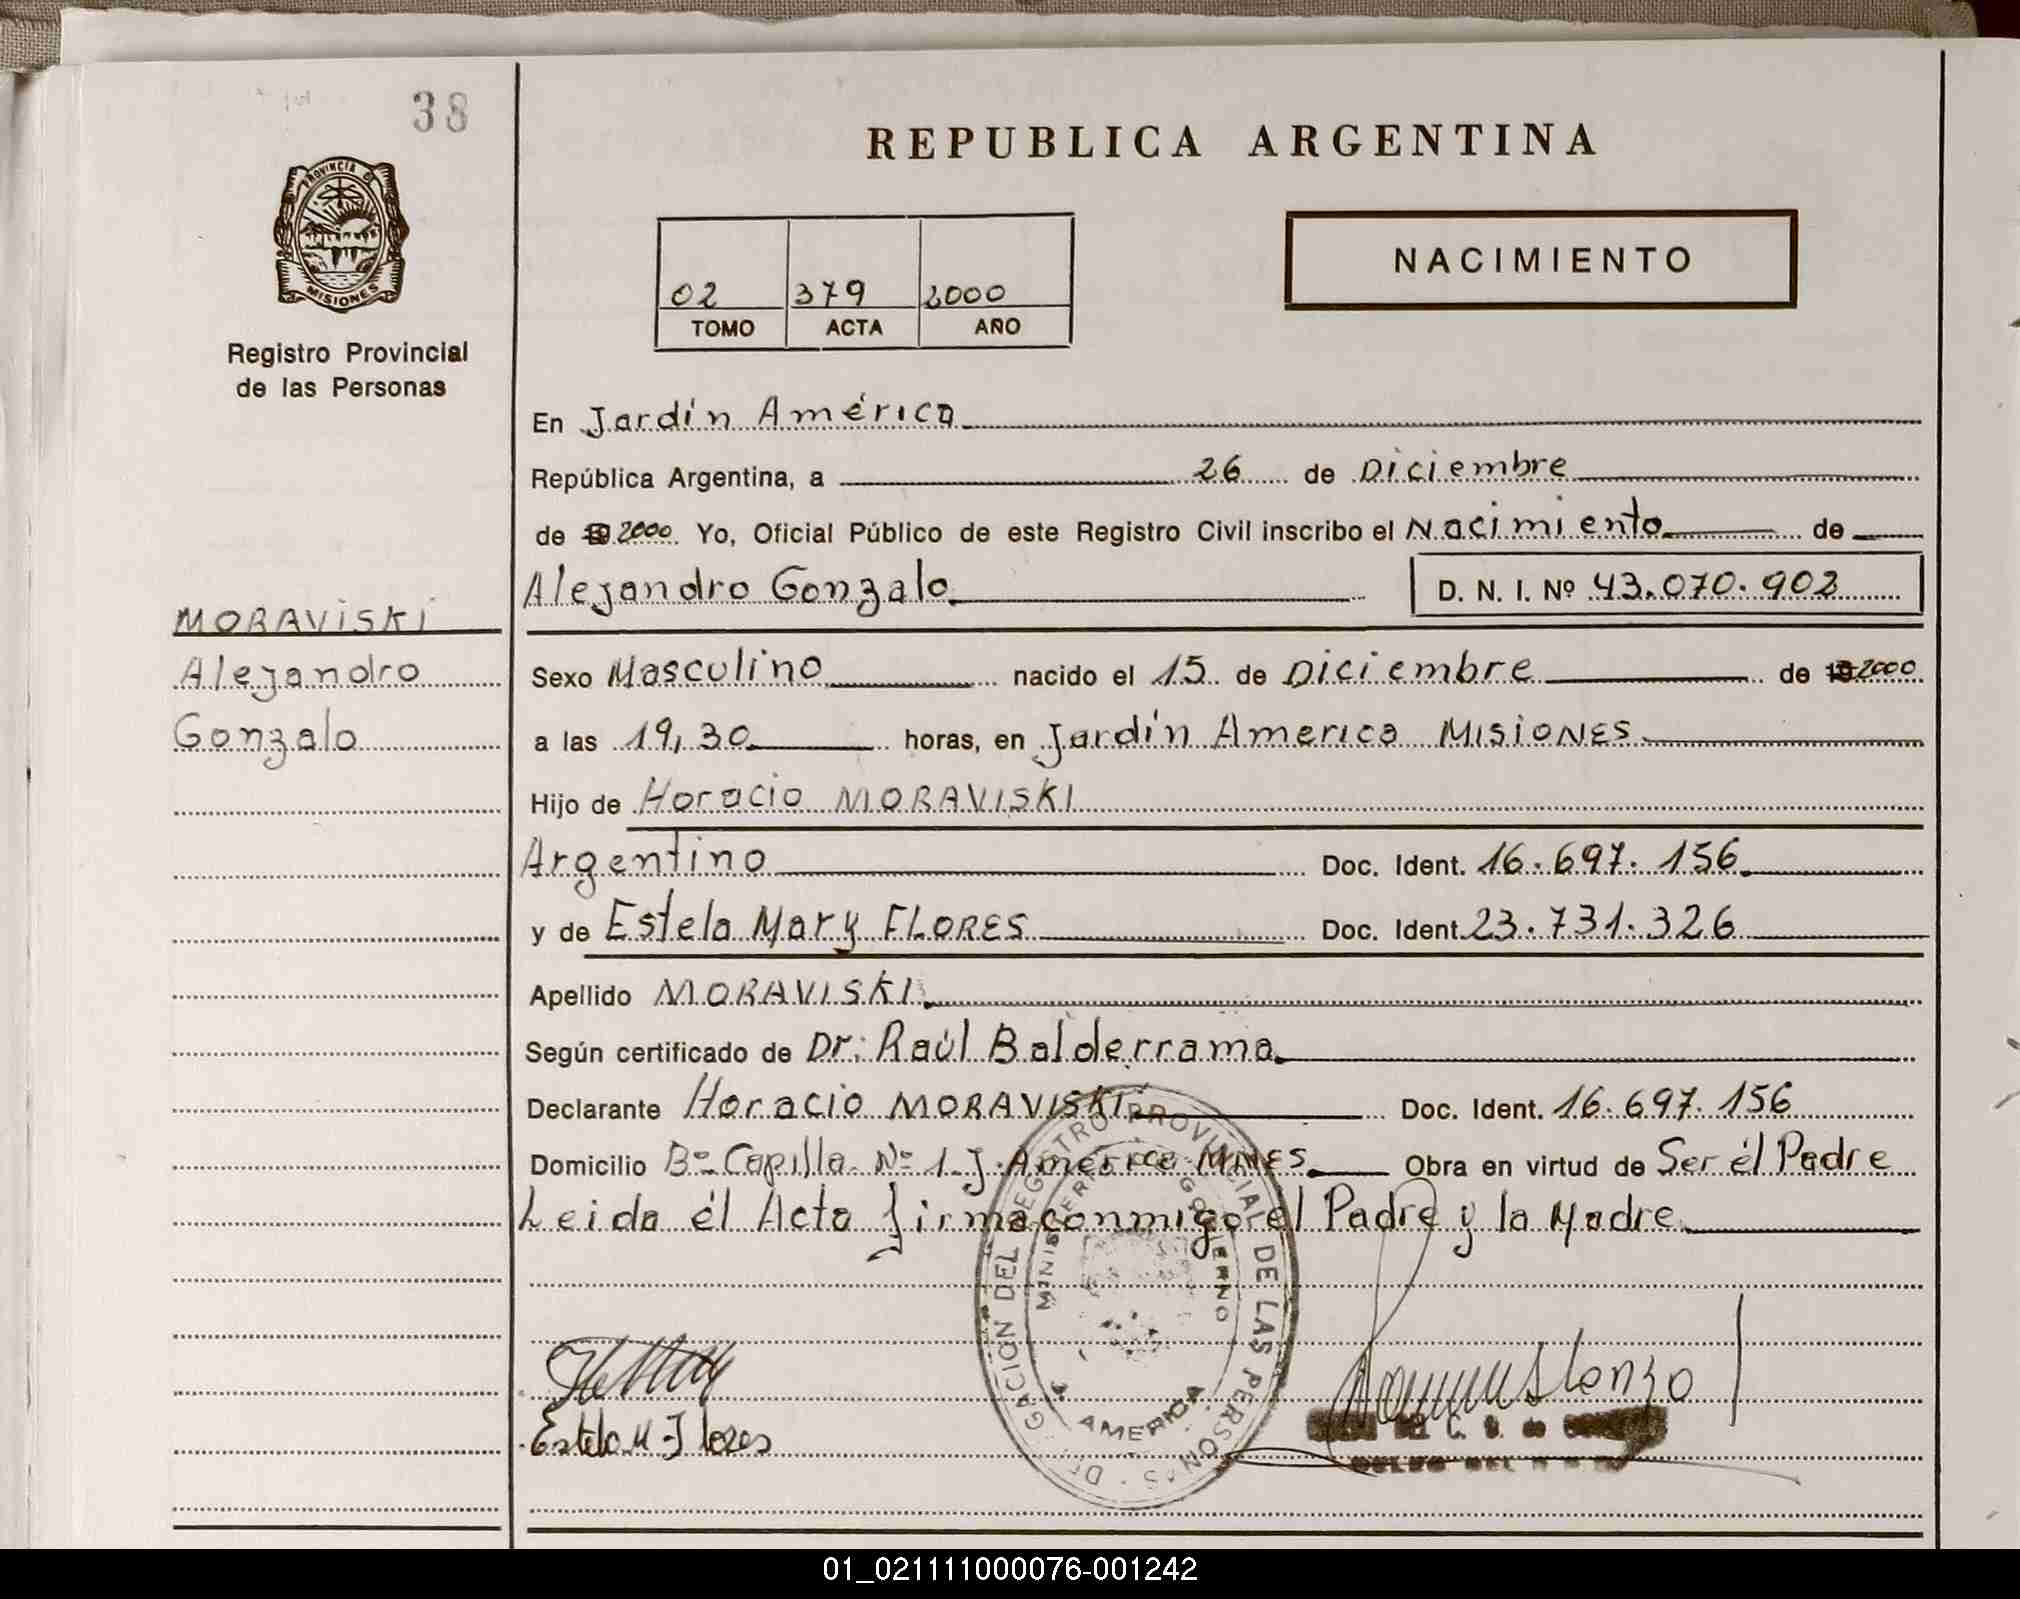 38
REPUBLICA ARGENTINA
PROVINCIA DE
MISIONES
NACIMIENTO
02 379 2000
TOMO ACTA AÑO
Registro Provincial
de las Personas
En Jardín América
República Argentina, a 26 de Diciembre
de 2000 Yo, Oficial Público de este Registro Civil inscribo el Nacimiento de
Alejandro Gonzalo D. N. I. Nº 43.070.902
MORAVISKI
Alejandro
Gonzalo
Sexo Masculino nacido el 15 de Diciembre de 2000
a las 19,30 horas, en Jardín America MISIONES
Hijo de Horacio MORAVISKI
Argentino Doc. Ident. 16.697.156
y de Estela Mary FLORES Doc. Ident. 23.731.326
Apellido MORAVISKI
Según certificado de Dr. Raúl Balderrama
Declarante Horacio MORAVISKI Doc. Ident. 16.697.156
Domicilio Bº Capilla Nº 1 J. America MNES Obra en virtud de Ser él Padre
Leida él Acta firma conmigo el Padre y la Madre
DELEGACION DEL REGISTRO PROVINCIAL DE LAS PERSONAS
MINISTERIO GOBIERNO
AMERICA
Estela M. Flores
01_021111000076-001242